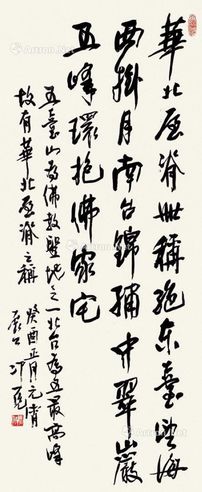 華北屋脊世稱絶东臺望海
西掛月南台錦繡中翠巖
五峰環抱佛家宅
五臺山為佛教聖地之一北台為最高峰
故有華北屋脊之稱 癸酉正月元宵